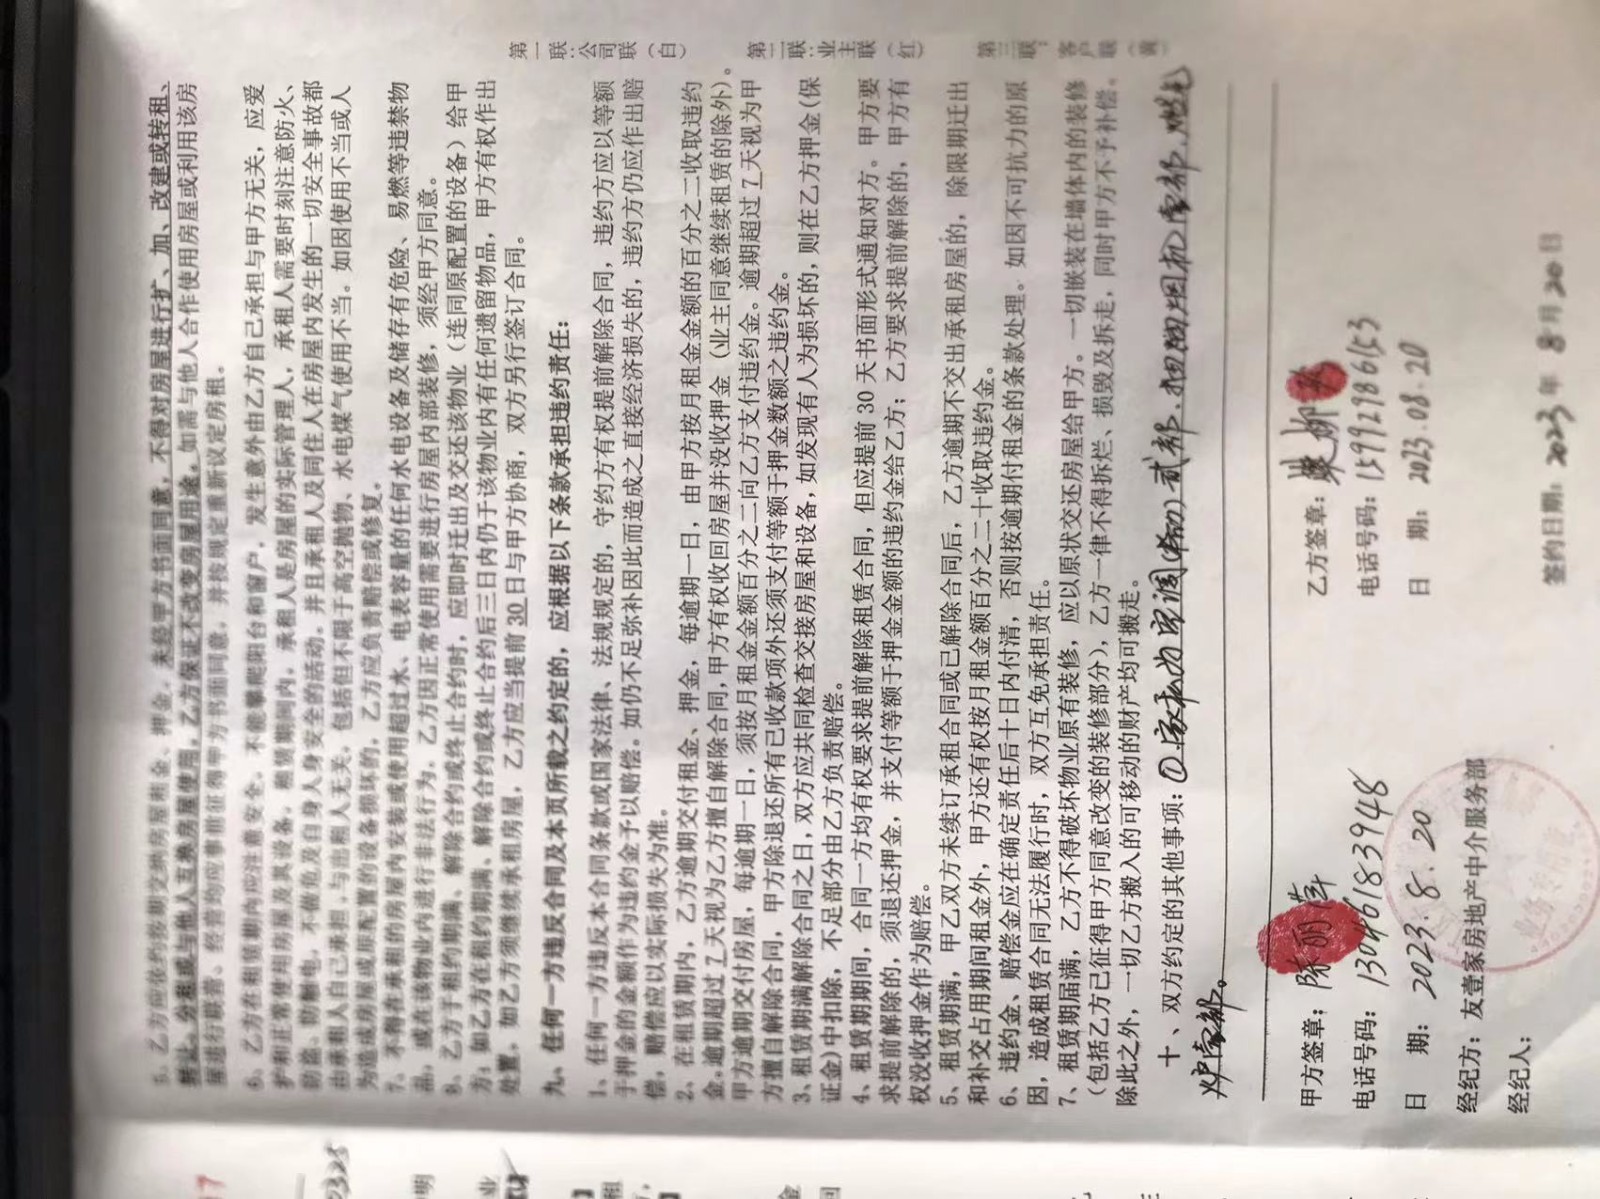 5、乙方应依约按期交纳房屋租金、押金。未经甲方书面同意，不得对房屋进行扩、加、改建或转租、
转让、分租或与他人互换房屋使用。乙方保证不改变房屋用途。如需与他人合作使用房屋或利用该房
屋进行联营、经营均应事前征得甲方书面同意，并按规定重新议定房租。
6、乙方在租赁期内应注意安全，不能攀爬阳台和窗户，发生意外由乙方自己承担与甲方无关，应爱
护和正常使用房屋及其设备。租赁期间内，承租人是房屋的实际管理人，承租人需要时刻注意防火、
防盗、防触电，不做危及自身人身安全的活动。并且承租人及同住人在房屋内发生的一切安全事故都
由承租人自己承担，与出租人无关。包括但不限于高空抛物、水电煤气使用不当。如因使用不当或人
为造成房屋或原配置的设备损坏的，乙方应负责赔偿或修复。
7、不得在承租的房屋内安装或使用超过水、电表容量的任何水电设备及储存有危险、易燃等违禁物
品，或在该物业内进行非法行为。乙方因正常使用需要进行房屋内部装修，须经甲方同意。
8、乙方于租约期满、解除合约或终止合约时，应即时迁出及交还该物业（连同原配置的设备）给甲
方，如乙方在租约期满、解除合约或终止合约后三日内仍于该物业内有任何遗留物品，甲方有权作出
处置，如乙方须继续承租房屋，乙方应当提前30日与甲方协商，双方另行签订合同。
九、任何一方违反合同及本页所载之约定的，应根据以下条款承担违约责任：
1、任何一方违反本合同条款或国家法律、法规规定的，守约方有权提前解除合同，违约方应以等额
于押金的金额作为违约金予以赔偿。如仍不足弥补因此而造成之直接经济损失的，违约方仍应作出赔
偿，赔偿应以实际损失为准。
2、在租赁期内，乙方逾期交付租金、押金，每逾期一日，由甲方按月租金金额的百分之二收取违约
金。逾期超过7天视为乙方擅自解除合同，甲方有权收回房屋并没收押金（业主同意继续租赁的除外）。
甲方逾期交付房屋，每逾期一日，须按月租金金额百分之二向乙方支付违约金。逾期超过7天视为甲
方擅自解除合同，甲方除退还所有已收款项外还须支付等额于押金数额之违约金。
3、租赁期满解除合同之日，双方应共同检查交接房屋和设备，如发现有人为损坏的，则在乙方押金（保
证金）中扣除，不足部分由乙方负责赔偿。
4、租赁期期间，合同一方均有权要求提前解除租赁合同，但应提前30天书面形式通知对方。甲方要
求提前解除的，须退还押金，并支付等额于押金金额的违约金给乙方；乙方要求提前解除的，甲方有
权没收押金作为赔偿。
5、租赁期满，甲乙双方未续订承租合同或已解除合同后，乙方逾期不交出承租房屋的，除限期迁出
和补交占用期间租金外，甲方还有权按月租金额百分之二十收取违约金。
6、违约金、赔偿金应在确定责任后十日内付清，否则按逾期付租金的条款处理。如因不可抗力的原
因，造成租赁合同无法履行时，双方互免承担责任。
7、租赁期届满，乙方不得破坏物业原有装修，应以原状交还房屋给甲方。一切嵌装在墙体内的装修
（包括乙方已征得甲方同意改变的装修部分），乙方一律不得拆烂、损毁及拆走，同时甲方不予补偿。
除此之外，一切乙方搬入的可移动的财产均可搬走。
十、双方约定的其他事项：①家私为空调 贰部、抽油烟机壹部、燃气
炉壹部。
甲方签章：陈丽萍
电话号码：13046183948
日 期：2023.8.20
经纪方：友壹家房地产中介服务部
经纪人：
乙方签章：
电话号码：15992986153
日 期：2023.08.20
签约日期：2023年8月20日
第一联：公司联（白）
第二联：业主联（红）
第三联：客户联（黄）